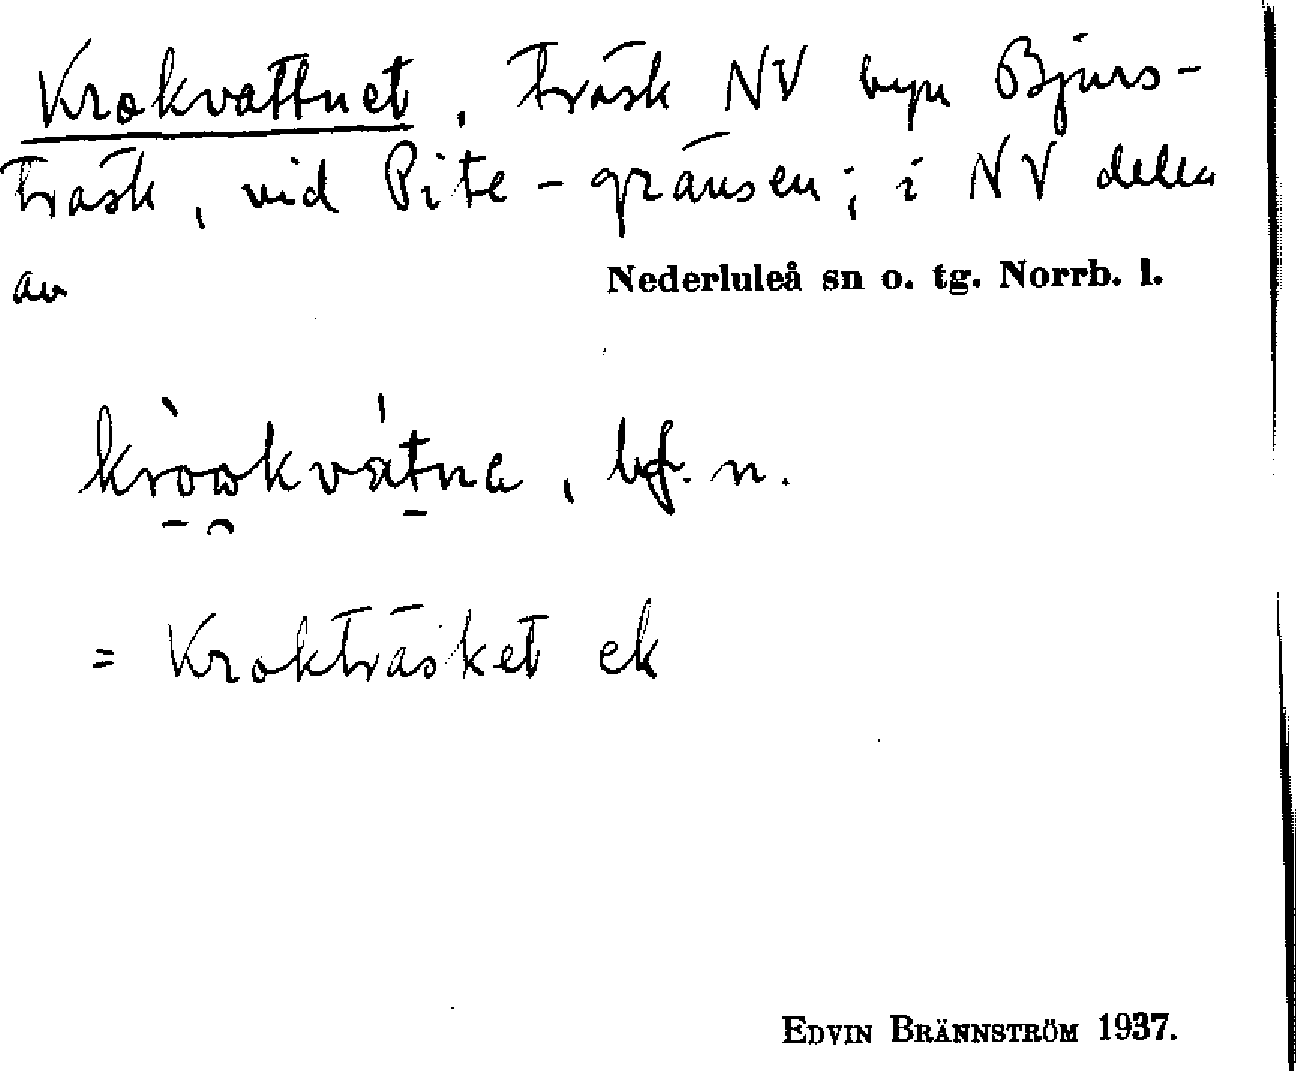 Krokvattnet, träsk NV byn Bjurs-
träsk, vid Pite-gränsen; i NV delen
av Nederluleå sn o. tg. Norrb. l.
kròo̯kvátna, bf. n.
= Krokträsket ek
EDVIN BRÄNNSTRÖM 1937.